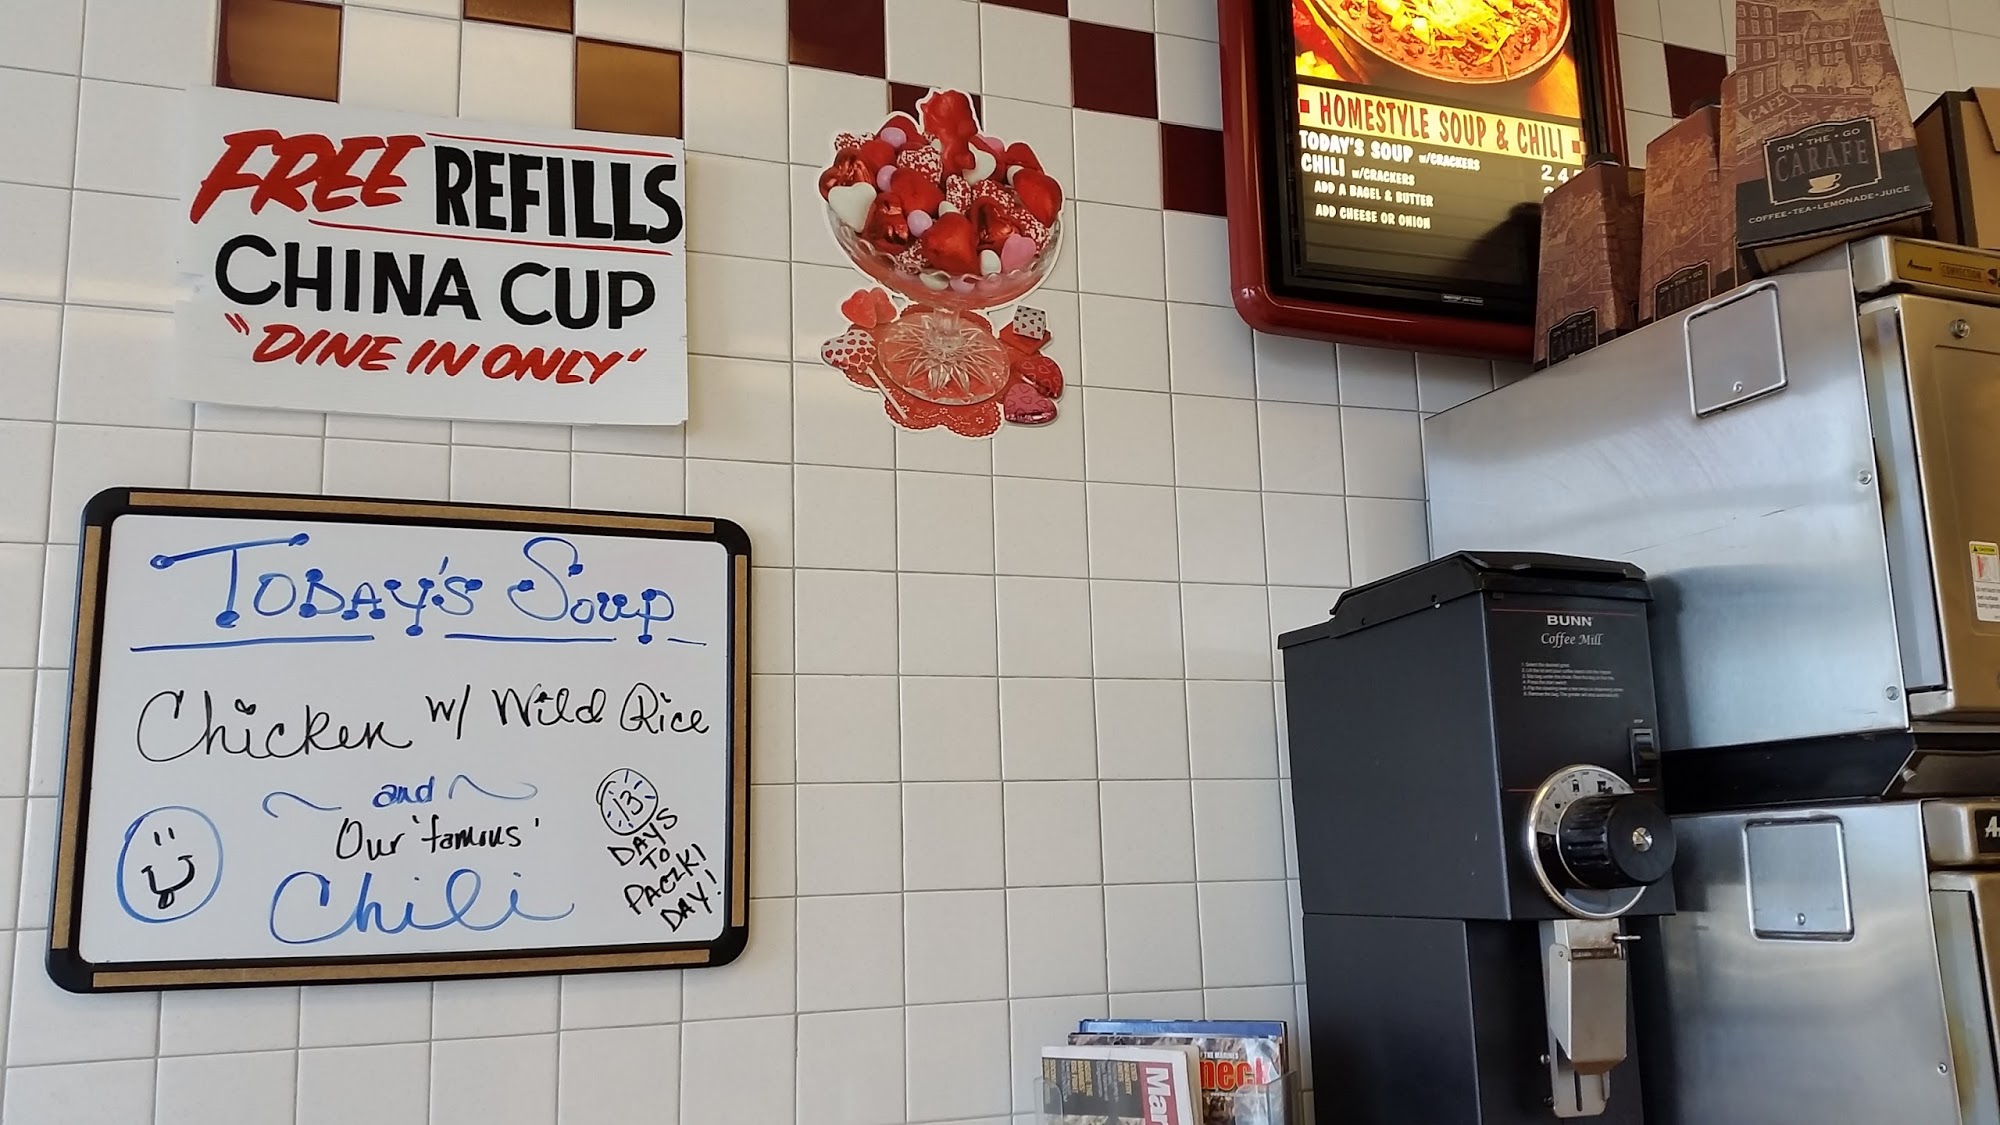 FREE REFILLS
CHINA CUP
"DINE IN ONLY"
TODAY'S SOUP
Chicken w/ Wild Rice
~ and ~
Our 'famous'
Chili
13
DAYS
TO
PACZKI
DAY!
HOMESTYLE SOUP & CHILI
TODAY'S SOUP W/CRACKERS
CHILI W/CRACKERS
ADD A BAGEL & BUTTER
ADD CHEESE OR ONION
CAFE
ON • THE • GO
CARAFE
COFFEE • TEA • LEMONADE • JUICE
ON • THE • GO
CARAFE
CARAFE
CAUTION
BUNN
Coffee Mill
OF THE MARINES